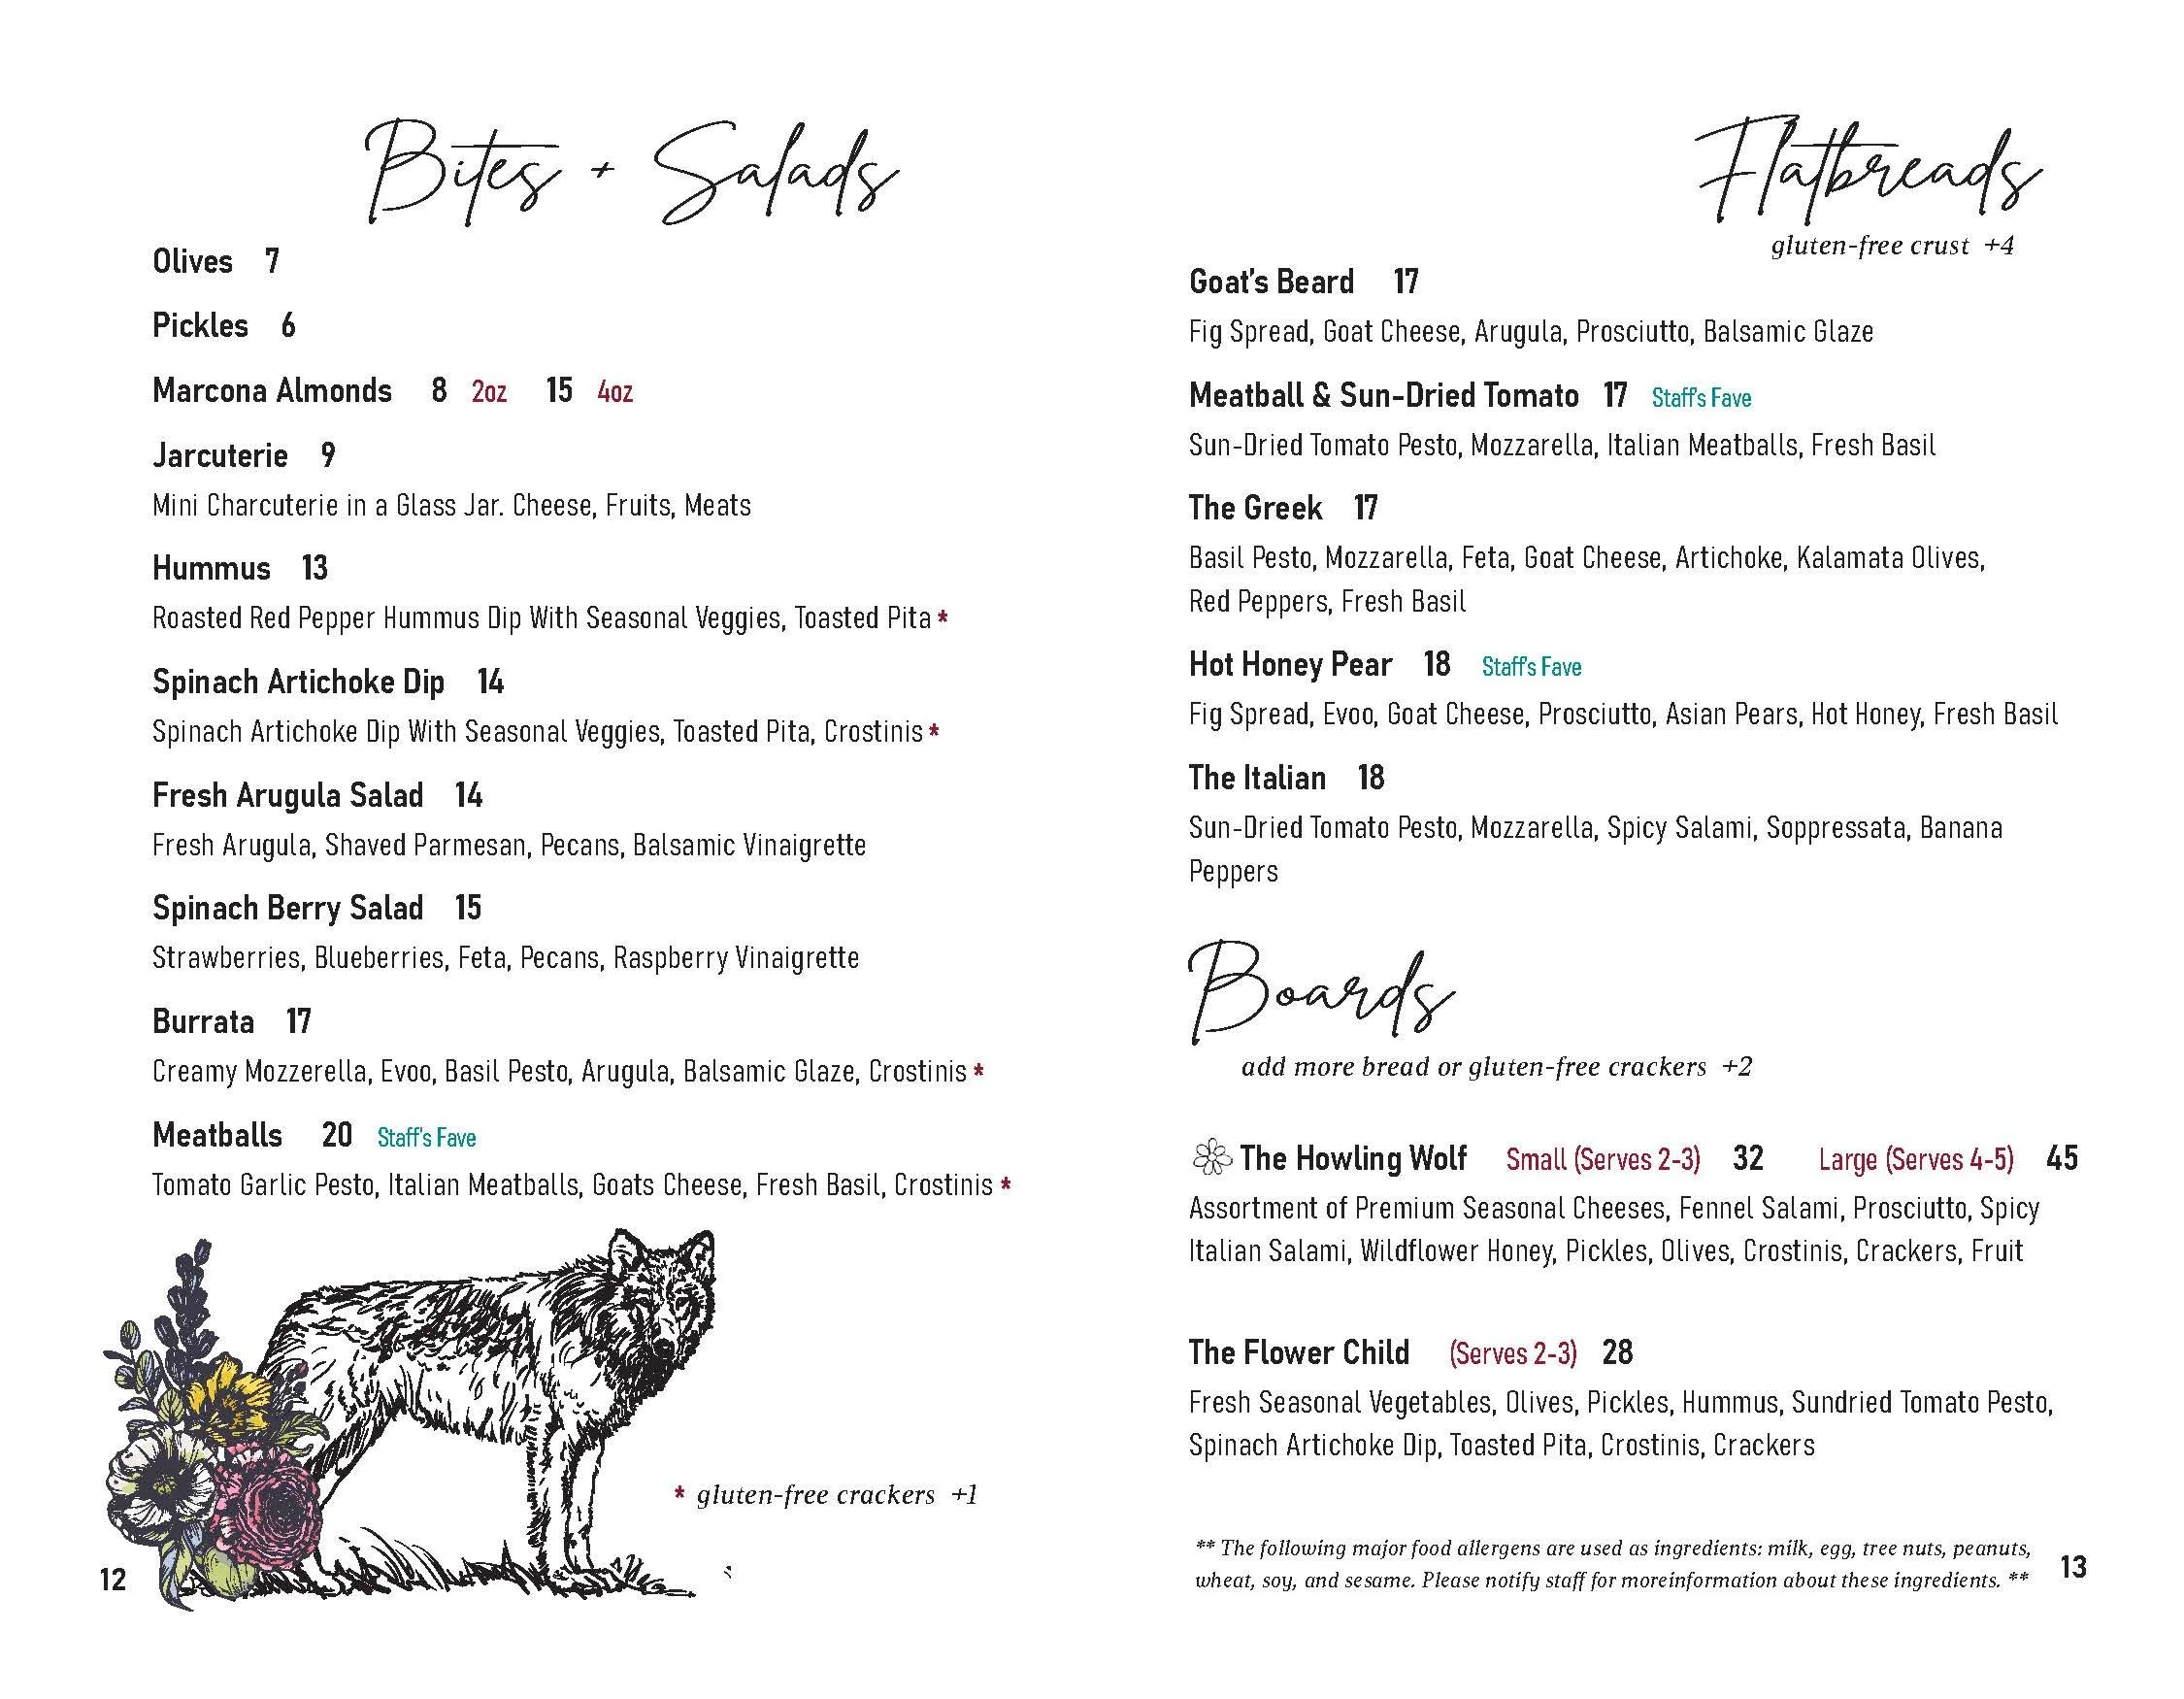 Bites + Salads
Olives 7
Pickles 6
Marcona Almonds 8 2oz 15 4oz
Jarcuterie 9
Mini Charcuterie in a Glass Jar. Cheese, Fruits, Meats
Hummus 13
Roasted Red Pepper Hummus Dip With Seasonal Veggies, Toasted Pita *
Spinach Artichoke Dip 14
Spinach Artichoke Dip With Seasonal Veggies, Toasted Pita, Crostinis *
Fresh Arugula Salad 14
Fresh Arugula, Shaved Parmesan, Pecans, Balsamic Vinaigrette
Spinach Berry Salad 15
Strawberries, Blueberries, Feta, Pecans, Raspberry Vinaigrette
Burrata 17
Creamy Mozzerella, Evoo, Basil Pesto, Arugula, Balsamic Glaze, Crostinis *
Meatballs 20 Staff's Fave
Tomato Garlic Pesto, Italian Meatballs, Goats Cheese, Fresh Basil, Crostinis *
* gluten-free crackers +1
12
Flatbreads
gluten-free crust +4
Goat's Beard 17
Fig Spread, Goat Cheese, Arugula, Prosciutto, Balsamic Glaze
Meatball & Sun-Dried Tomato 17 Staff's Fave
Sun-Dried Tomato Pesto, Mozzarella, Italian Meatballs, Fresh Basil
The Greek 17
Basil Pesto, Mozzarella, Feta, Goat Cheese, Artichoke, Kalamata Olives,
Red Peppers, Fresh Basil
Hot Honey Pear 18 Staff's Fave
Fig Spread, Evoo, Goat Cheese, Prosciutto, Asian Pears, Hot Honey, Fresh Basil
The Italian 18
Sun-Dried Tomato Pesto, Mozzarella, Spicy Salami, Soppressata, Banana
Peppers
Boards
add more bread or gluten-free crackers +2
The Howling Wolf Small (Serves 2-3) 32 Large (Serves 4-5) 45
Assortment of Premium Seasonal Cheeses, Fennel Salami, Prosciutto, Spicy
Italian Salami, Wildflower Honey, Pickles, Olives, Crostinis, Crackers, Fruit
The Flower Child (Serves 2-3) 28
Fresh Seasonal Vegetables, Olives, Pickles, Hummus, Sundried Tomato Pesto,
Spinach Artichoke Dip, Toasted Pita, Crostinis, Crackers
** The following major food allergens are used as ingredients: milk, egg, tree nuts, peanuts,
wheat, soy, and sesame. Please notify staff for moreinformation about these ingredients. **
13